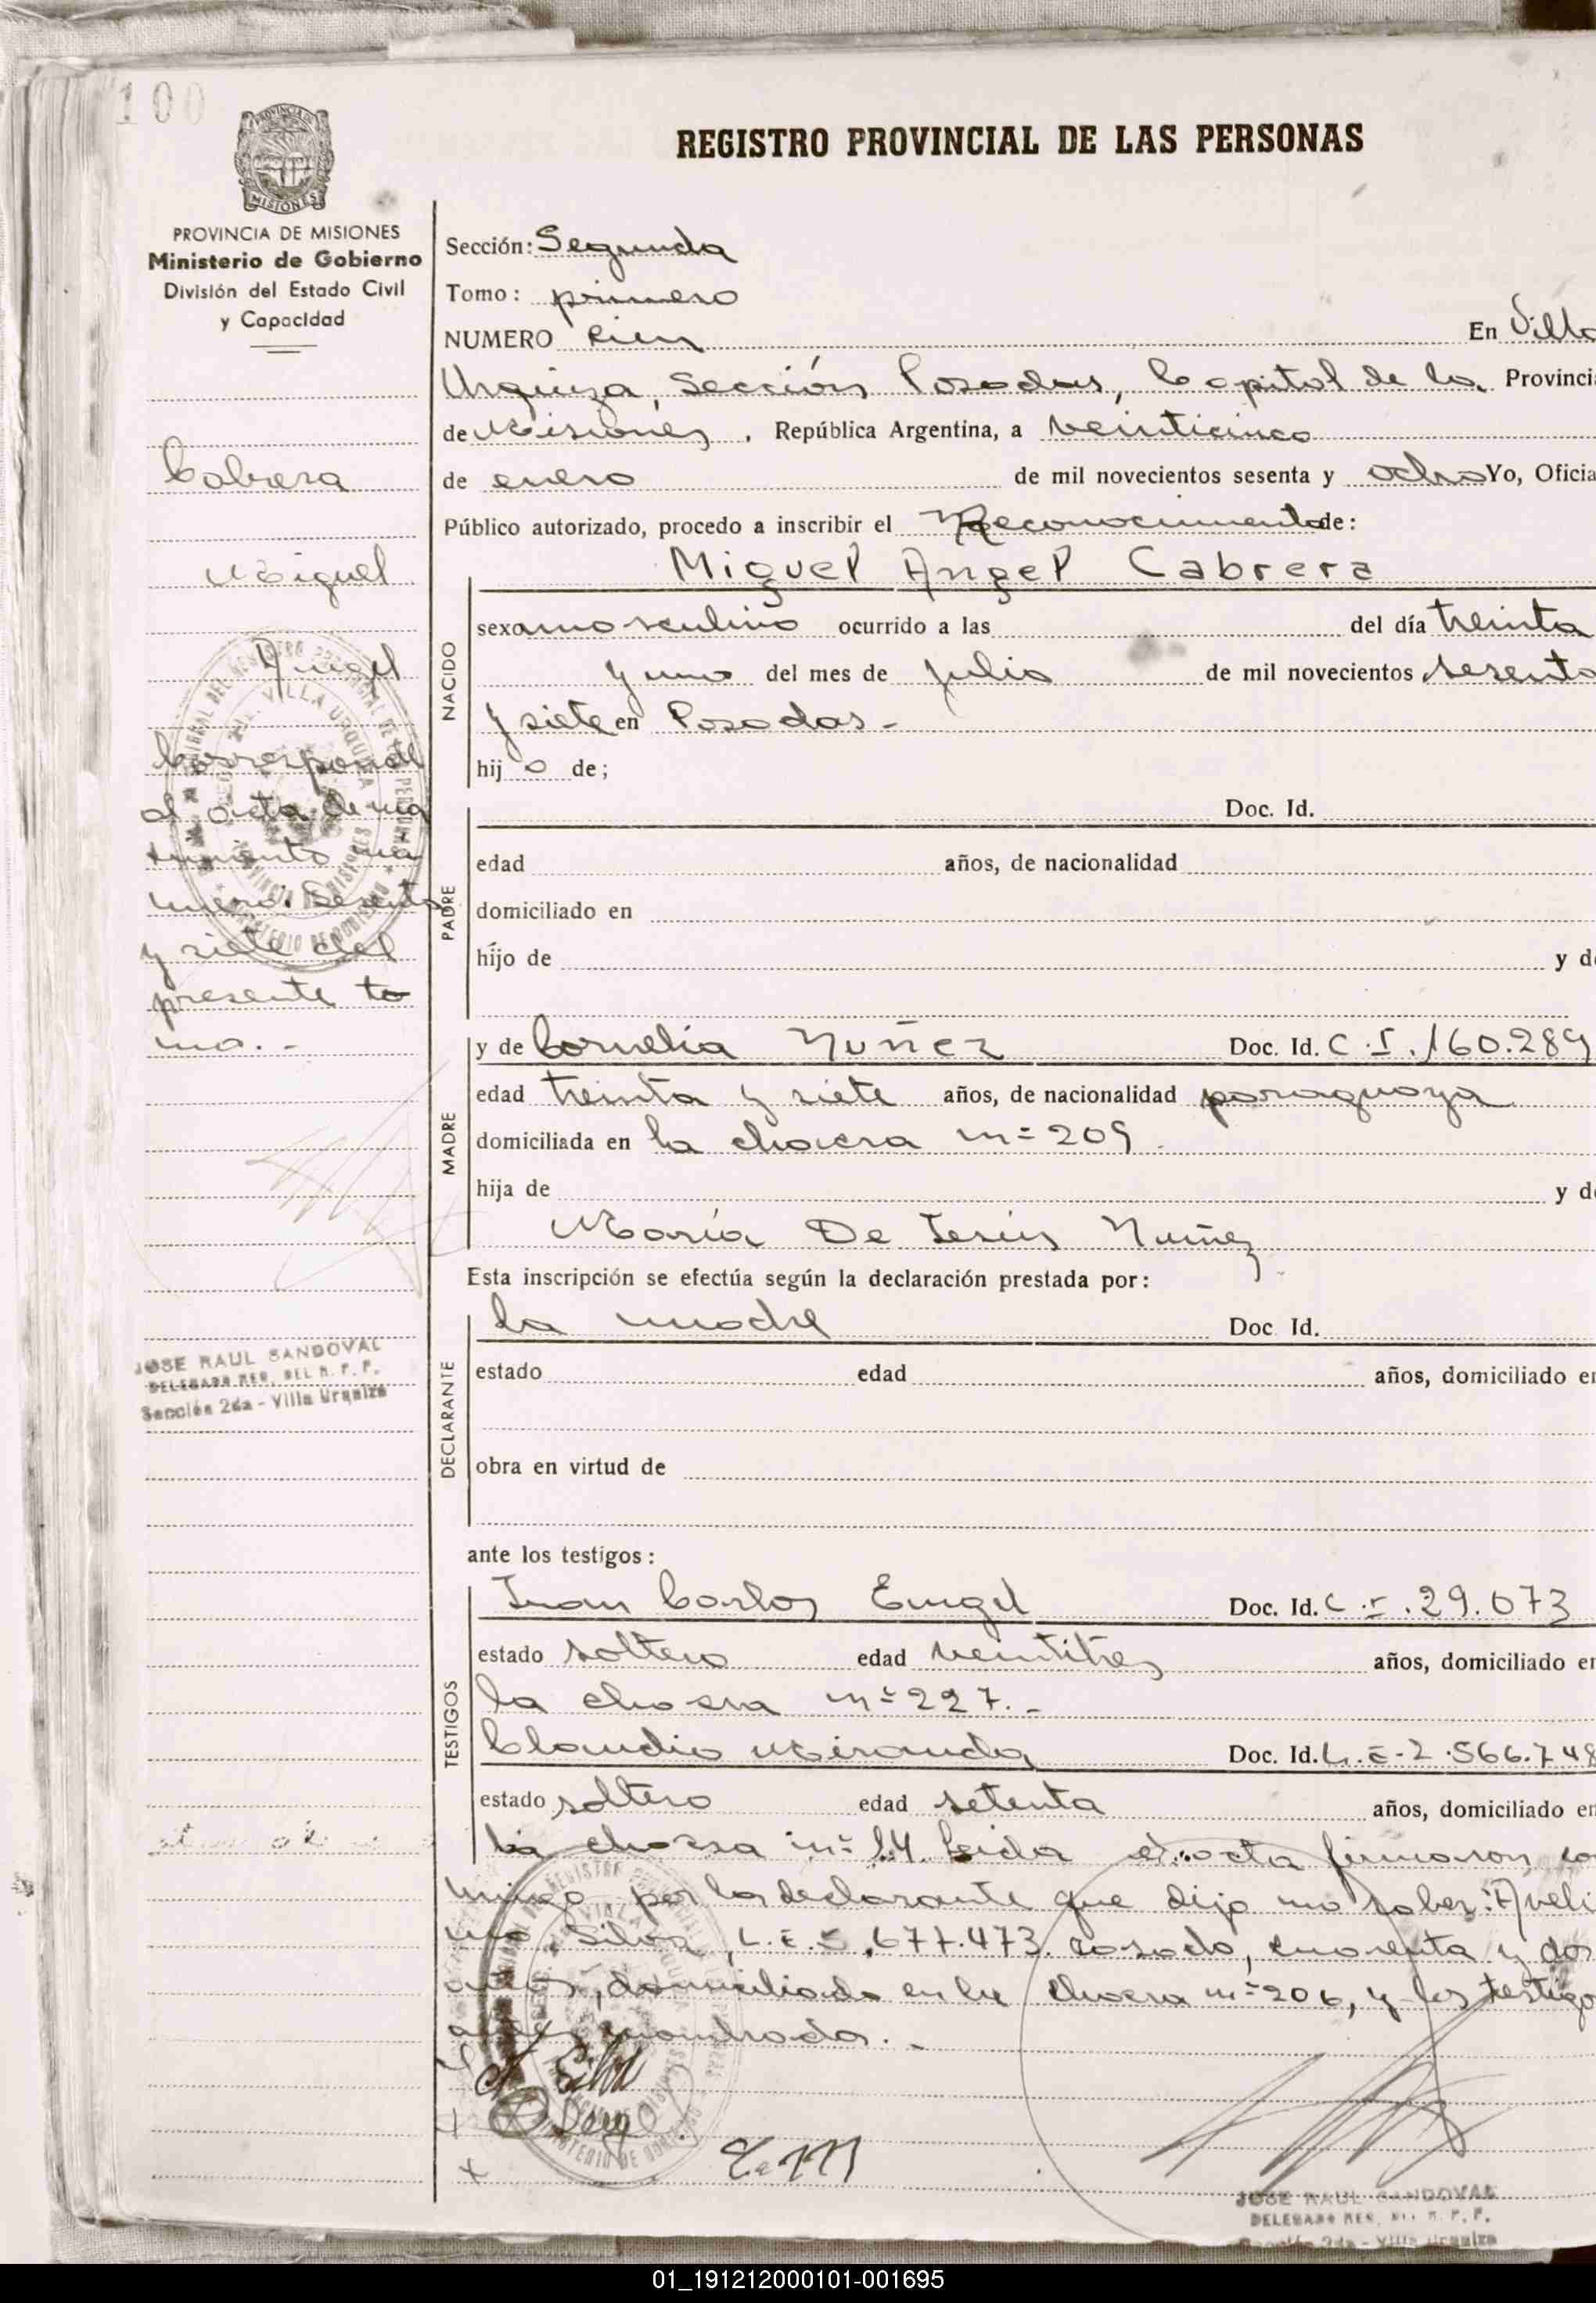 100
PROVINCIA DE MISIONES
MISIONES
PROVINCIA DE MISIONES
Ministerio de Gobierno
División del Estado Civil
y Capacidad
Cabrera
Miguel
Angel
Corresponde
al acta de na
cimiento nú
mero: Sesenta
y siete del
presente to
mo.-
JOSE RAUL SANDOVAL
Sección 2da - Villa Urquiza
REGISTRO PROVINCIAL DE LAS PERSONAS
Sección: Segunda
Tomo: primero
NUMERO Cien En Villa
Urquiza, Sección Posadas, Capital de la Provinci
de Misiones, República Argentina, a veinticinco
de enero de mil novecientos sesenta y ocho Yo, Oficia
Público autorizado, procedo a inscribir el Reconocimiento de:
Miguel Angel Cabrera
NACIDO
sexo masculino ocurrido a las del día treinta
y uno del mes de julio de mil novecientos sesenta
y siete en Posadas-
hij o de;
PADRE
Doc. Id.
edad años, de nacionalidad
domiciliado en
hijo de y de
MADRE
y de Cornelia Nuñez Doc. Id. C.I. 160.289
edad treinta y siete años, de nacionalidad paraguaya
domiciliada en la chacra nº 209.
hija de y de
María De Jesús Nuñez
Esta inscripción se efectúa según la declaración prestada por:
DECLARANTE
la madre Doc. Id.
estado edad años, domiciliado en
obra en virtud de
ante los testigos:
TESTIGOS
Juan Carlos Engel Doc. Id. C.I. 29.073
estado soltero edad veintitres años, domiciliado en
la chacra nº 227.-
Claudio Miranda Doc. Id. L.E-2.566.748
estado soltero edad setenta años, domiciliado en
la chacra nº 14. Leida el acta firmaron, con
migo por la declarante que dijo no saber: Aveli
no Silva, L.E. 5.677.473. casado, cuarenta y dos
años, domiciliado en la chacra nº 206, y los testigo
antes nombrados.-
A Silva
JOSE RAUL SANDOVAL
Sección 2da - Villa Urquiza
01_191212000101-001695